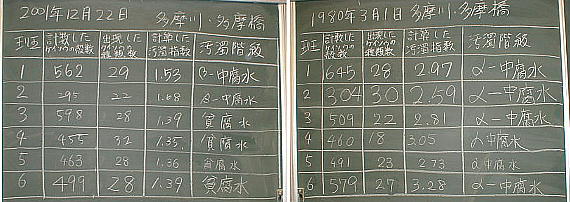 2001年12月22日 多摩川·多摩橋
班 計数したケイソウの殻数 出現したケイソウの種類数 計算した汚濁指数 汚濁階級
1 562 29 1.53 β-中腐水
2 295 22 1.68 β-中腐水
3 598 28 1.39 貧腐水
4 455 32 1.35 貧腐水
5 463 28 1.36 貧腐水
6 499 28 1.39 貧腐水
1980年3月1日 多摩川·多摩橋
班 計数したケイソウの殻数 出現したケイソウの種類数 計算した汚濁指数 汚濁階級
1 645 28 2.97 α-中腐水
2 304 30 2.59 α-中腐水
3 509 22 2.81 α-中腐水
4 460 18 3.05 α中腐水
5 491 23 2.73 α中腐水
6 579 27 3.28 α-中腐水